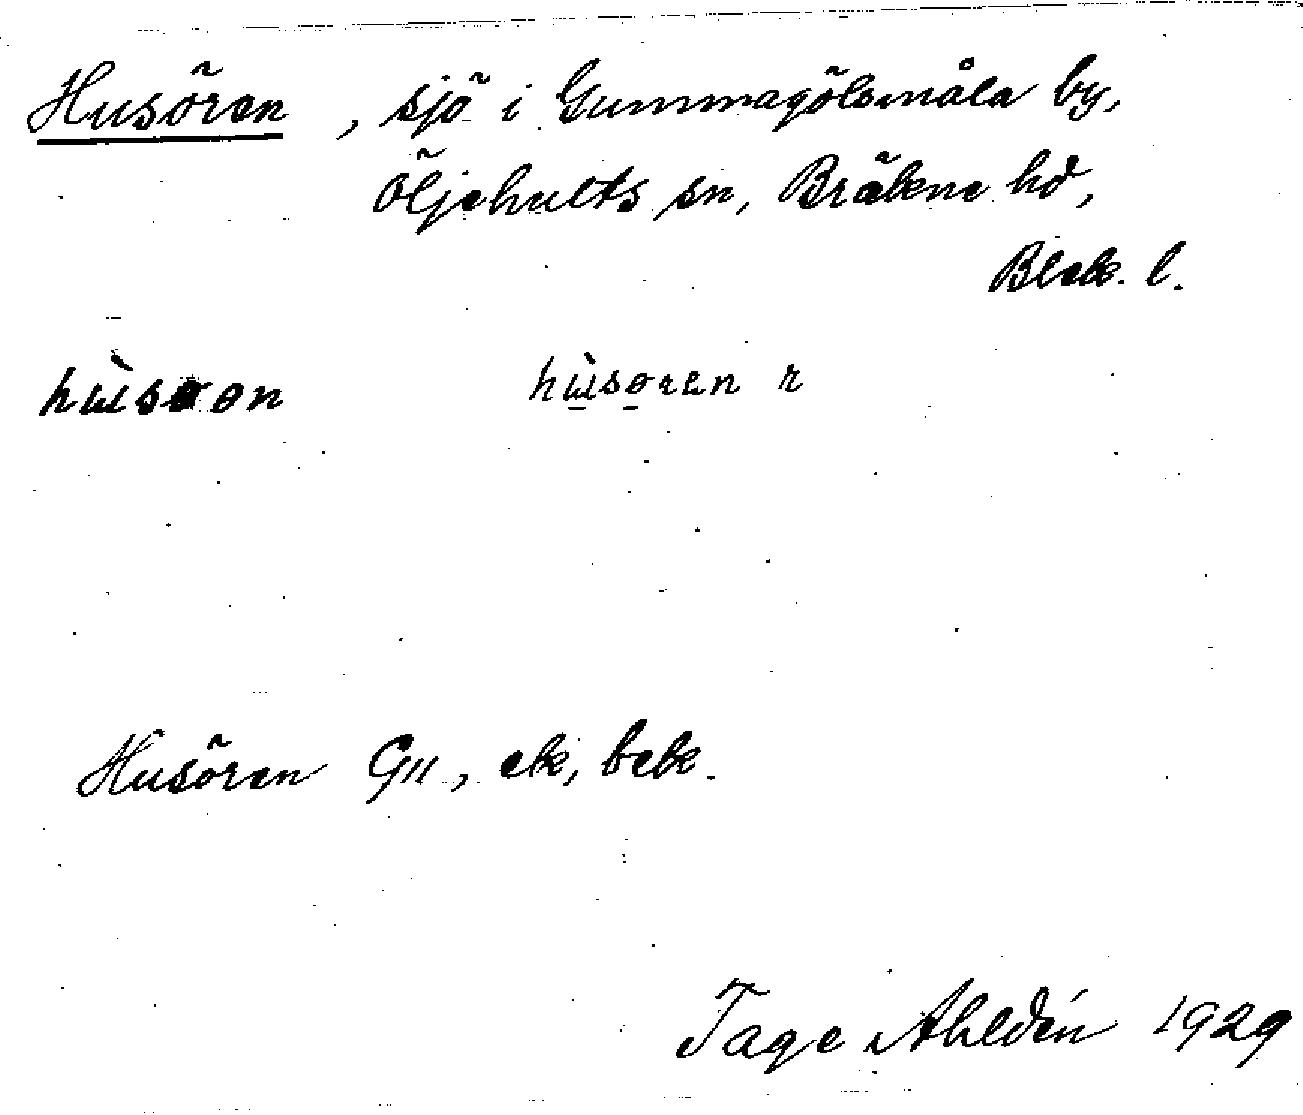 Husören, sjö i Gummagölsmåla by,
Öljehults sn, Bräkne hd,
Blek. l.
husøren r
Husören G11, ek, bek.
Tage Ahldén 1929